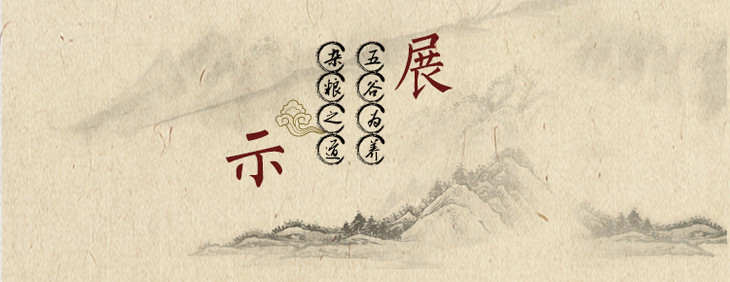 展
五谷为养
杂粮之道
示